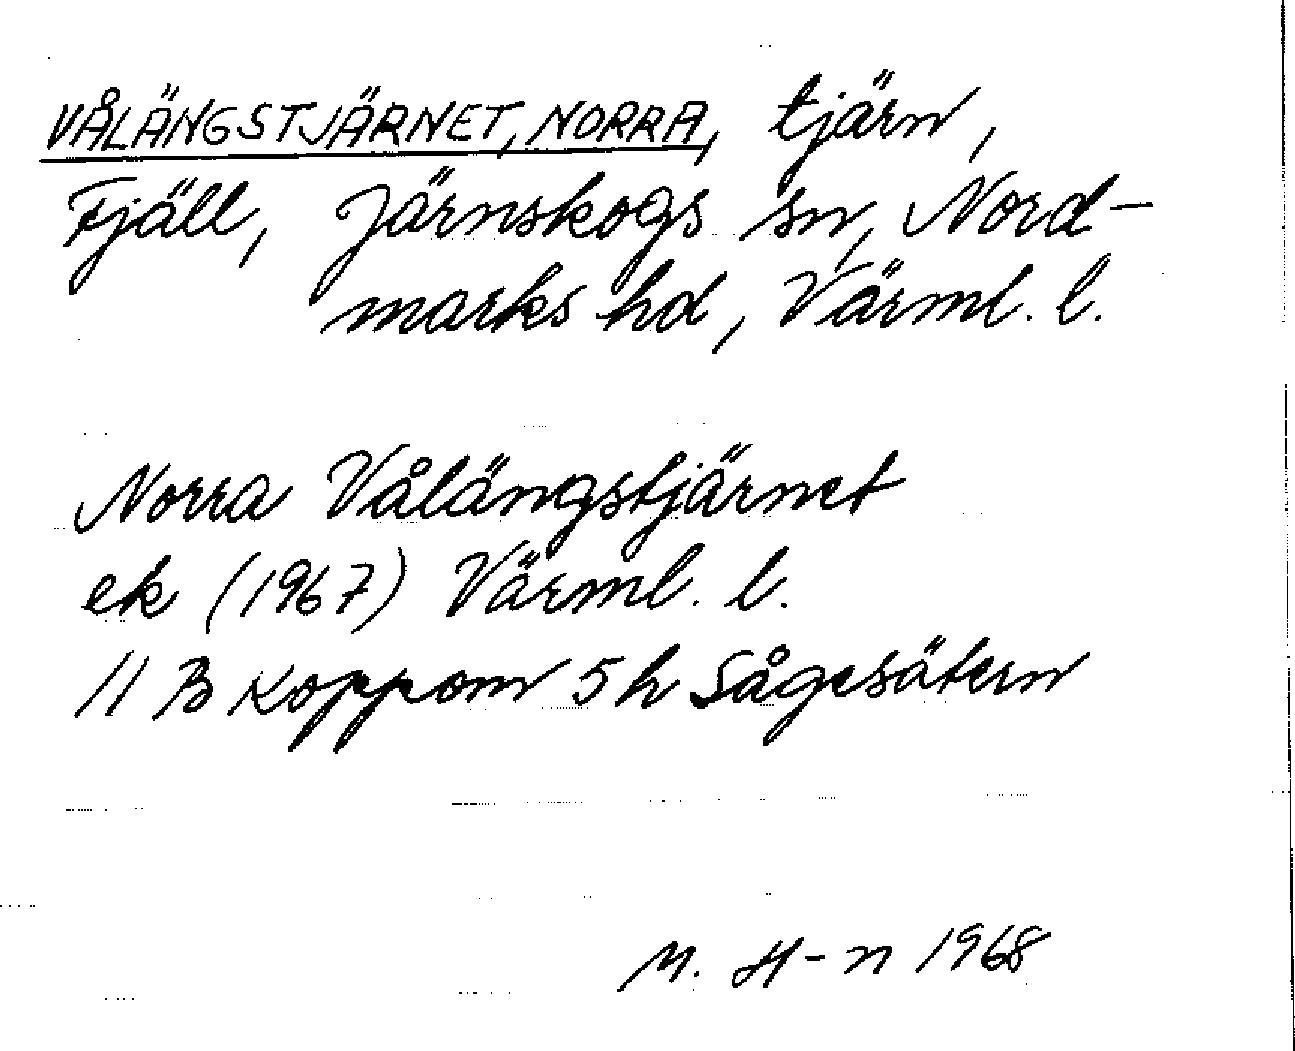 VÅLÄNGSTJÄRNET, NORRA, tjärn,
Fjäll, Järnskogs sn, Nord-
marks hd, Värml. l.
Norra Vålängstjärnet
ek (1967) Värml. l.
11 B Koppom 5h Sågesätern
M. H-n 1968